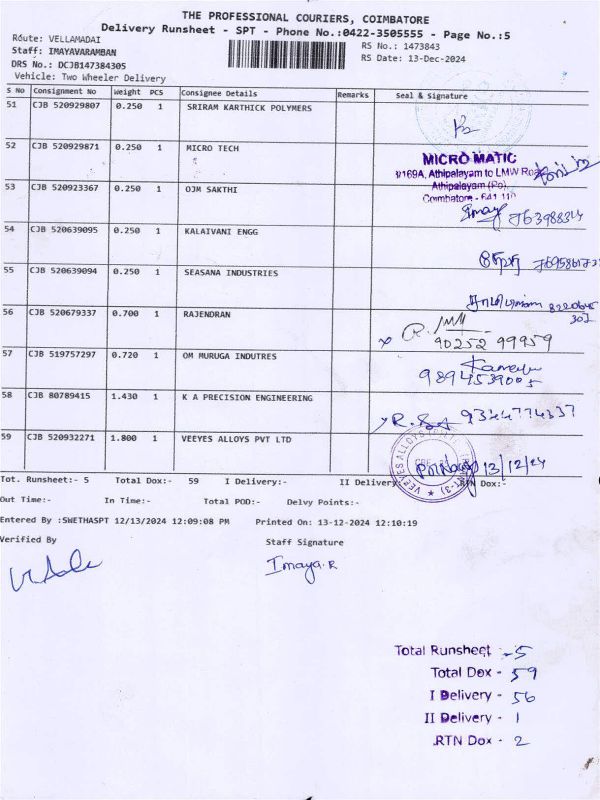 THE PROFESSIONAL COURIERS, COIMBATORE
Delivery Runsheet - SPT - Phone No.:0422-3505555 - Page No.:5
Route: VELLAMADAI
RS No.: 1473843
Staff: IMAYAVARAMBAN
RS Date: 13-Dec-2024
DRS No.: DCJB147384305
Vehicle: Two Wheeler Delivery
S No Consignment No Weight PCS Consignee Details Remarks Seal & Signature
51 CJB 520929807 0.250 1 SRIRAM KARTHICK POLYMERS
52 CJB 520929871 0.250 1 MICRO TECH
MICRO MATIC
169A, Athipalayam to LMW Road
Athipalayam (Po),
Coimbatore - 641 110
53 CJB 520923367 0.250 1 OJM SAKTHI
54 CJB 520639095 0.250 1 KALAIVANI ENGG
55 CJB 520639094 0.250 1 SEASANA INDUSTRIES
56 CJB 520679337 0.700 1 RAJENDRAN
90252 99959
57 CJB 519757297 0.720 1 OM MURUGA INDUTRES
9894539005
58 CJB 80789415 1.430 1 K A PRECISION ENGINEERING
9344774337
59 CJB 520932271 1.800 1 VEEYES ALLOYS PVT LTD
13/12/24
Tot. Runsheet:- 5 Total Dox:- 59 I Delivery:- II Delivery:- RTN Dox:-
Out Time:- In Time:- Total POD:- Delvy Points:-
Entered By :SWETHASPT 12/13/2024 12:09:08 PM Printed On: 13-12-2024 12:10:19
Verified By Staff Signature
Imaya.R
Total Runsheet - 5
Total Dox - 59
I Delivery - 56
II Delivery - 1
RTN Dox - 2